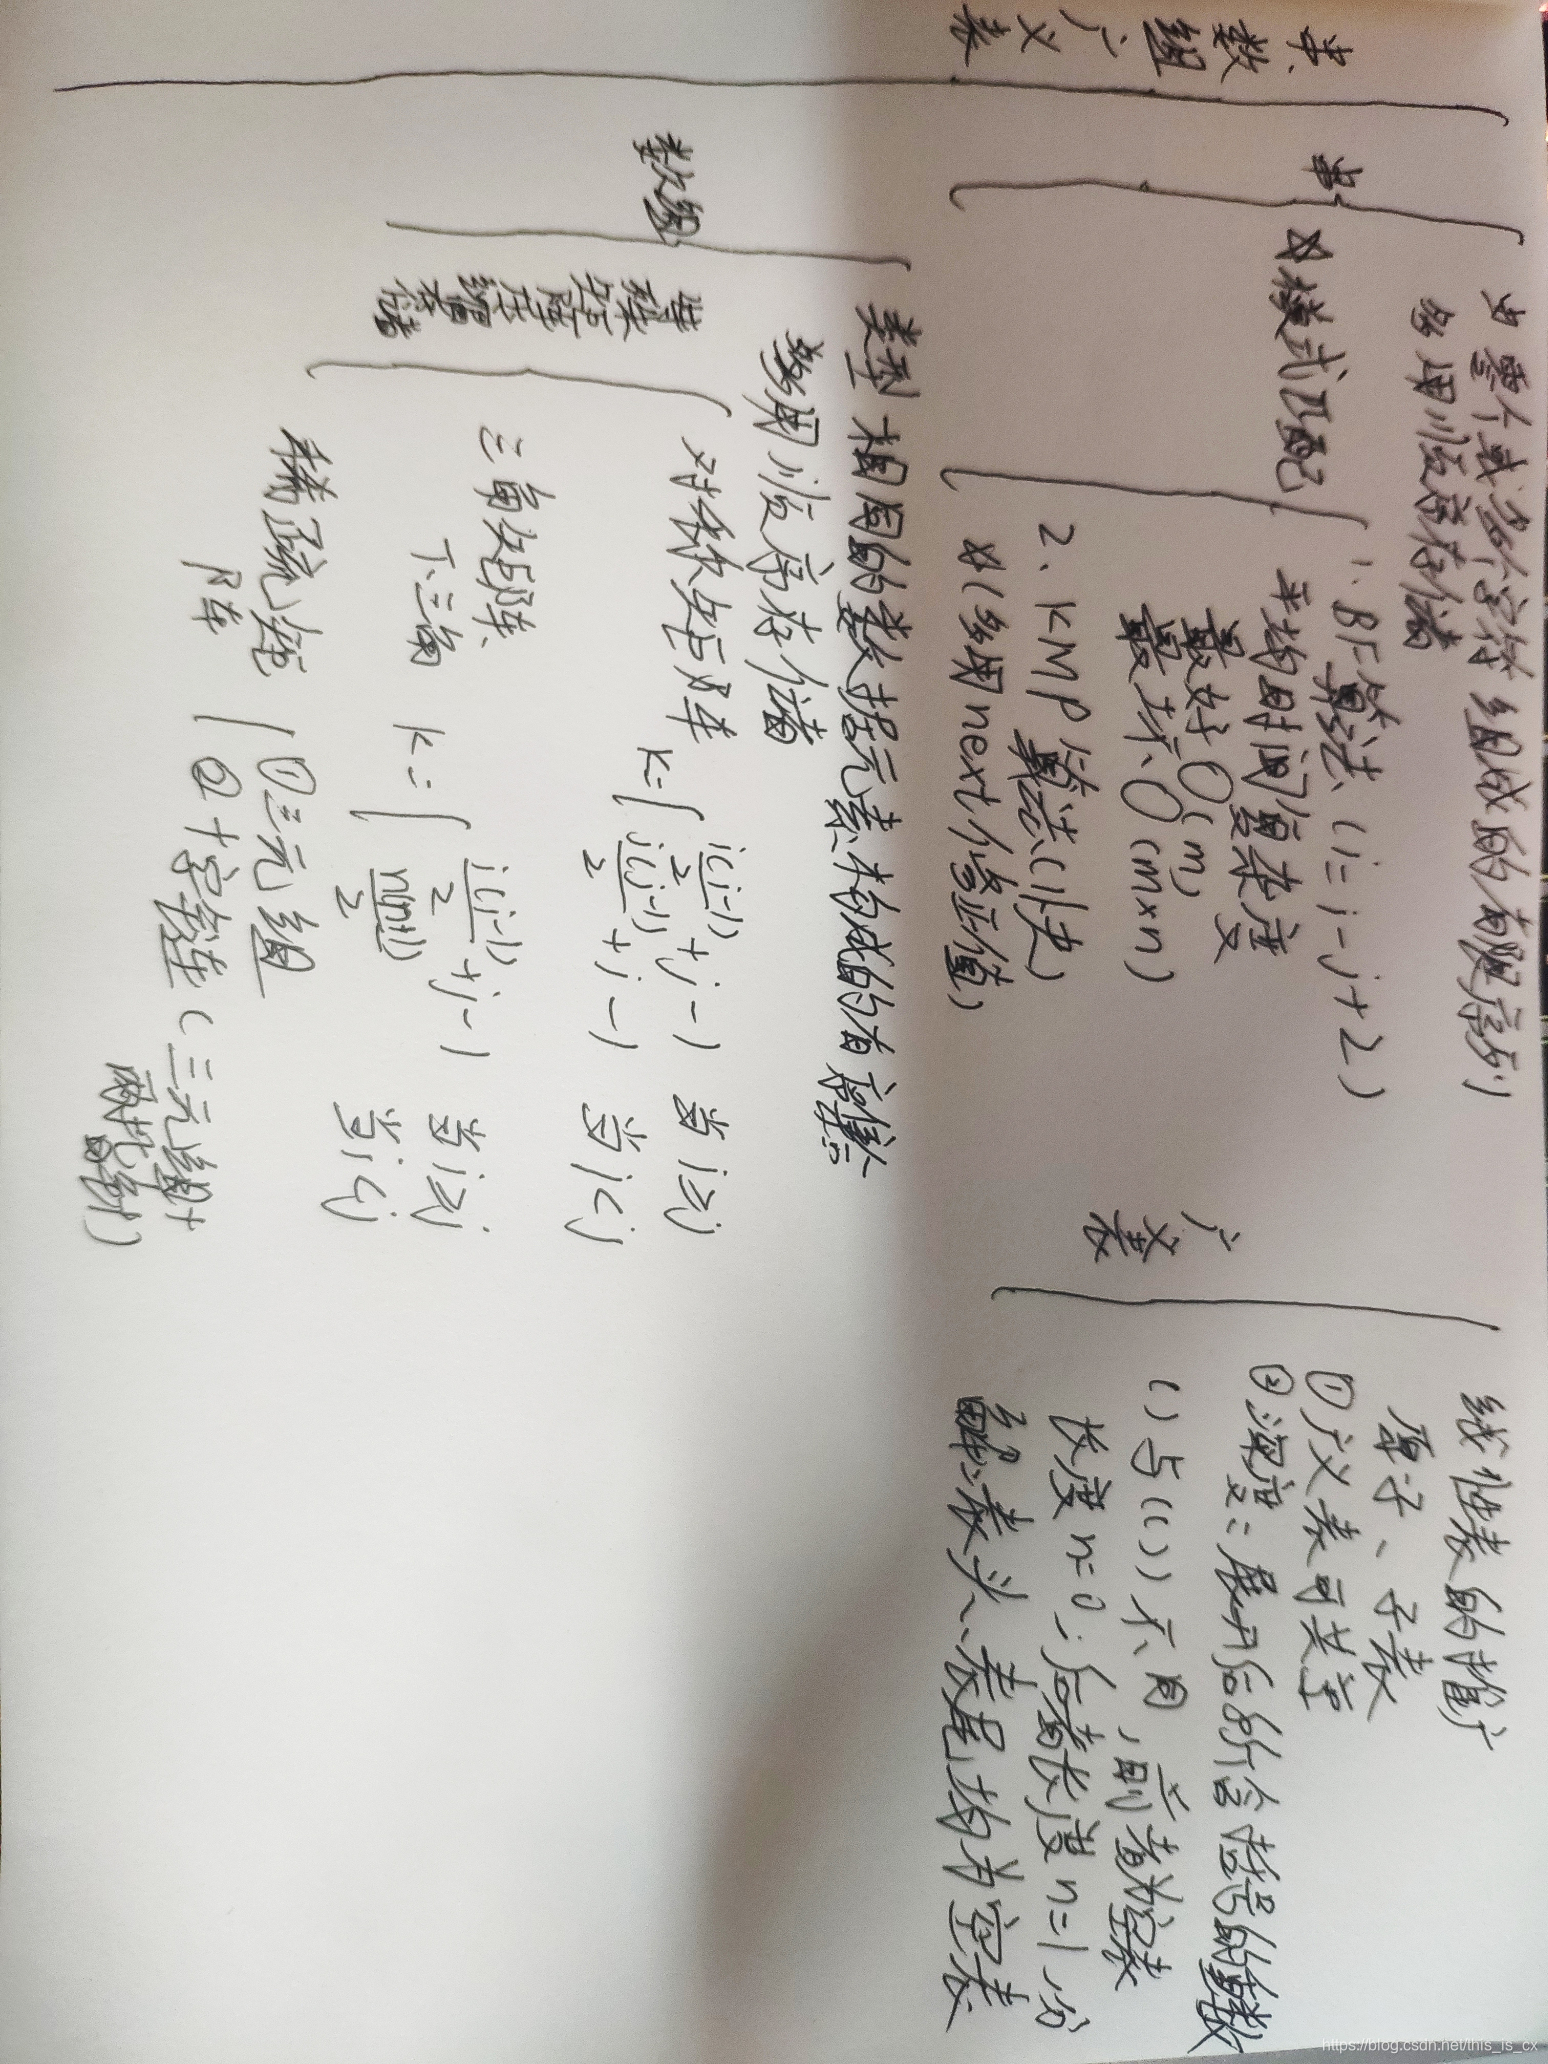 串、数组、广义表
串
由零个或多个字符组成的有限序列
多用顺序存储
☆模式匹配
1、BF算法 (i=i-j+2)
平均时间复杂度
最好O(m)
最坏O(m×n)
2、KMP算法(快)
☆(多用next修正值)
数组
类型相同的数据元素构成的有序集合
多用顺序存储
特殊矩阵压缩存储
对称矩阵
k={ i(i-1)/2 + j-1 当i≥j
j(j-1)/2 + i-1 当i<j
三角矩阵
下三角 k={ i(i-1)/2 + j-1 当i≥j
n(n+1)/2 当i<j
稀疏矩阵
①三元组
②十字链(三元组+
两指针)
广义表
线性表的推广
原子、子表
①广义表可共享
②深度:展开后所含括号的层数
()与(())不同,前者为空表
长度n=0;后者长度n=1,分
解表头、表尾均为空表
https://blog.csdn.net/this_is_cx